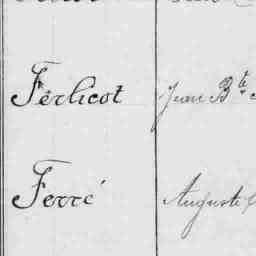 Ferlicot Jean Bte
Ferré Auguste